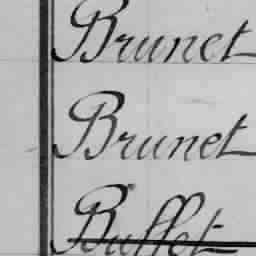 Brunet
Brunet
Buffet